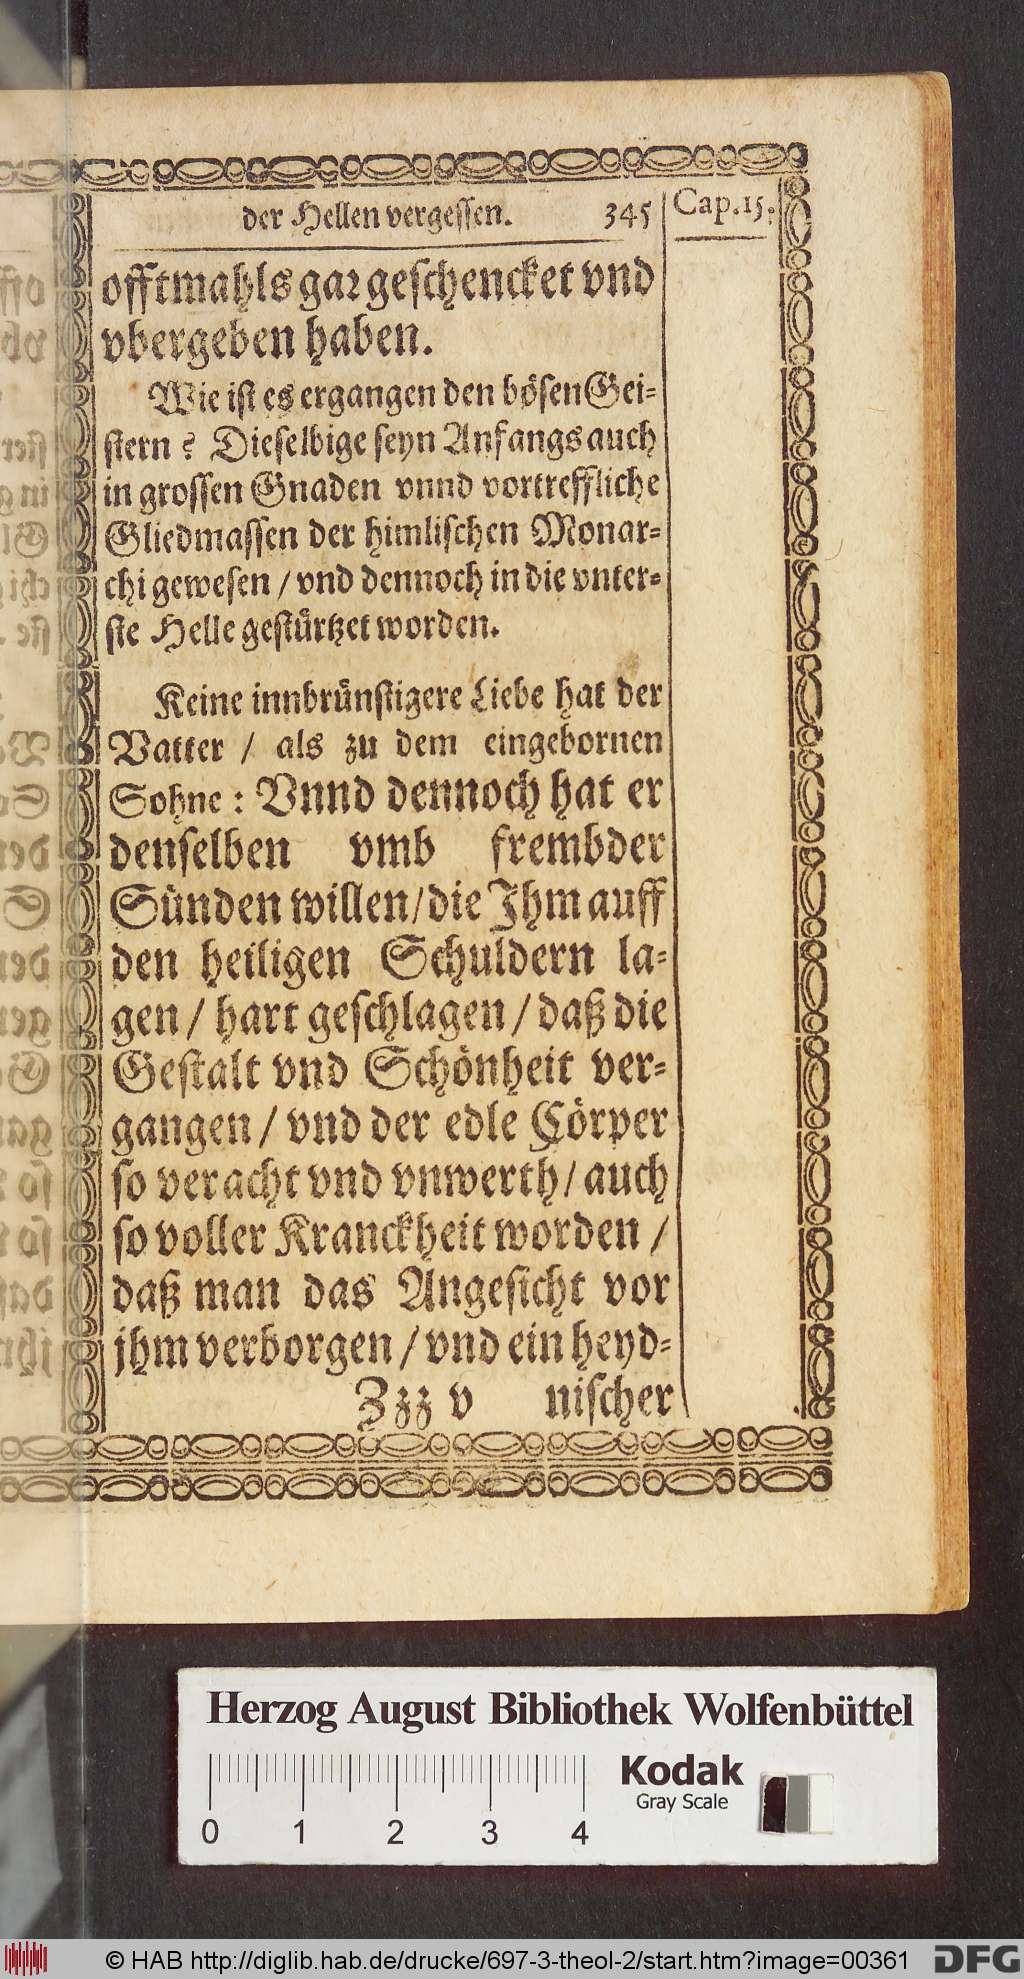 der Hellen vergessen. 345 Cap.15.
offtmahls gar geschencket vnd
vbergeben haben.
Wie ist es ergangen den bösen Gei-
stern? Dieselbige seyn Anfangs auch
in grossen Gnaden vnnd vortreffliche
Gliedmassen der himlischen Monar-
chi gewesen / vnd dennoch in die vnter-
ste Helle gestürtzet worden.
Keine innbrünstigere Liebe hat der
Vatter / als zu dem eingebornen
Sohne: Vnnd dennoch hat er
denselben vmb frembder
Sünden willen / die Ihm auff
den heiligen Schuldern la-
gen / hart geschlagen / daß die
Gestalt vnd Schönheit ver-
gangen / vnd der edle Cörper
so veracht vnd vnwerth / auch
so voller Kranckheit worden /
daß man das Angesicht vor
jhm verborgen / vnd ein heyd-
Zzz v nischer
Herzog August Bibliothek Wolfenbüttel
Kodak
Gray Scale
0 1 2 3 4
© HAB http://diglib.hab.de/drucke/697-3-theol-2/start.htm?image=00361
DFG